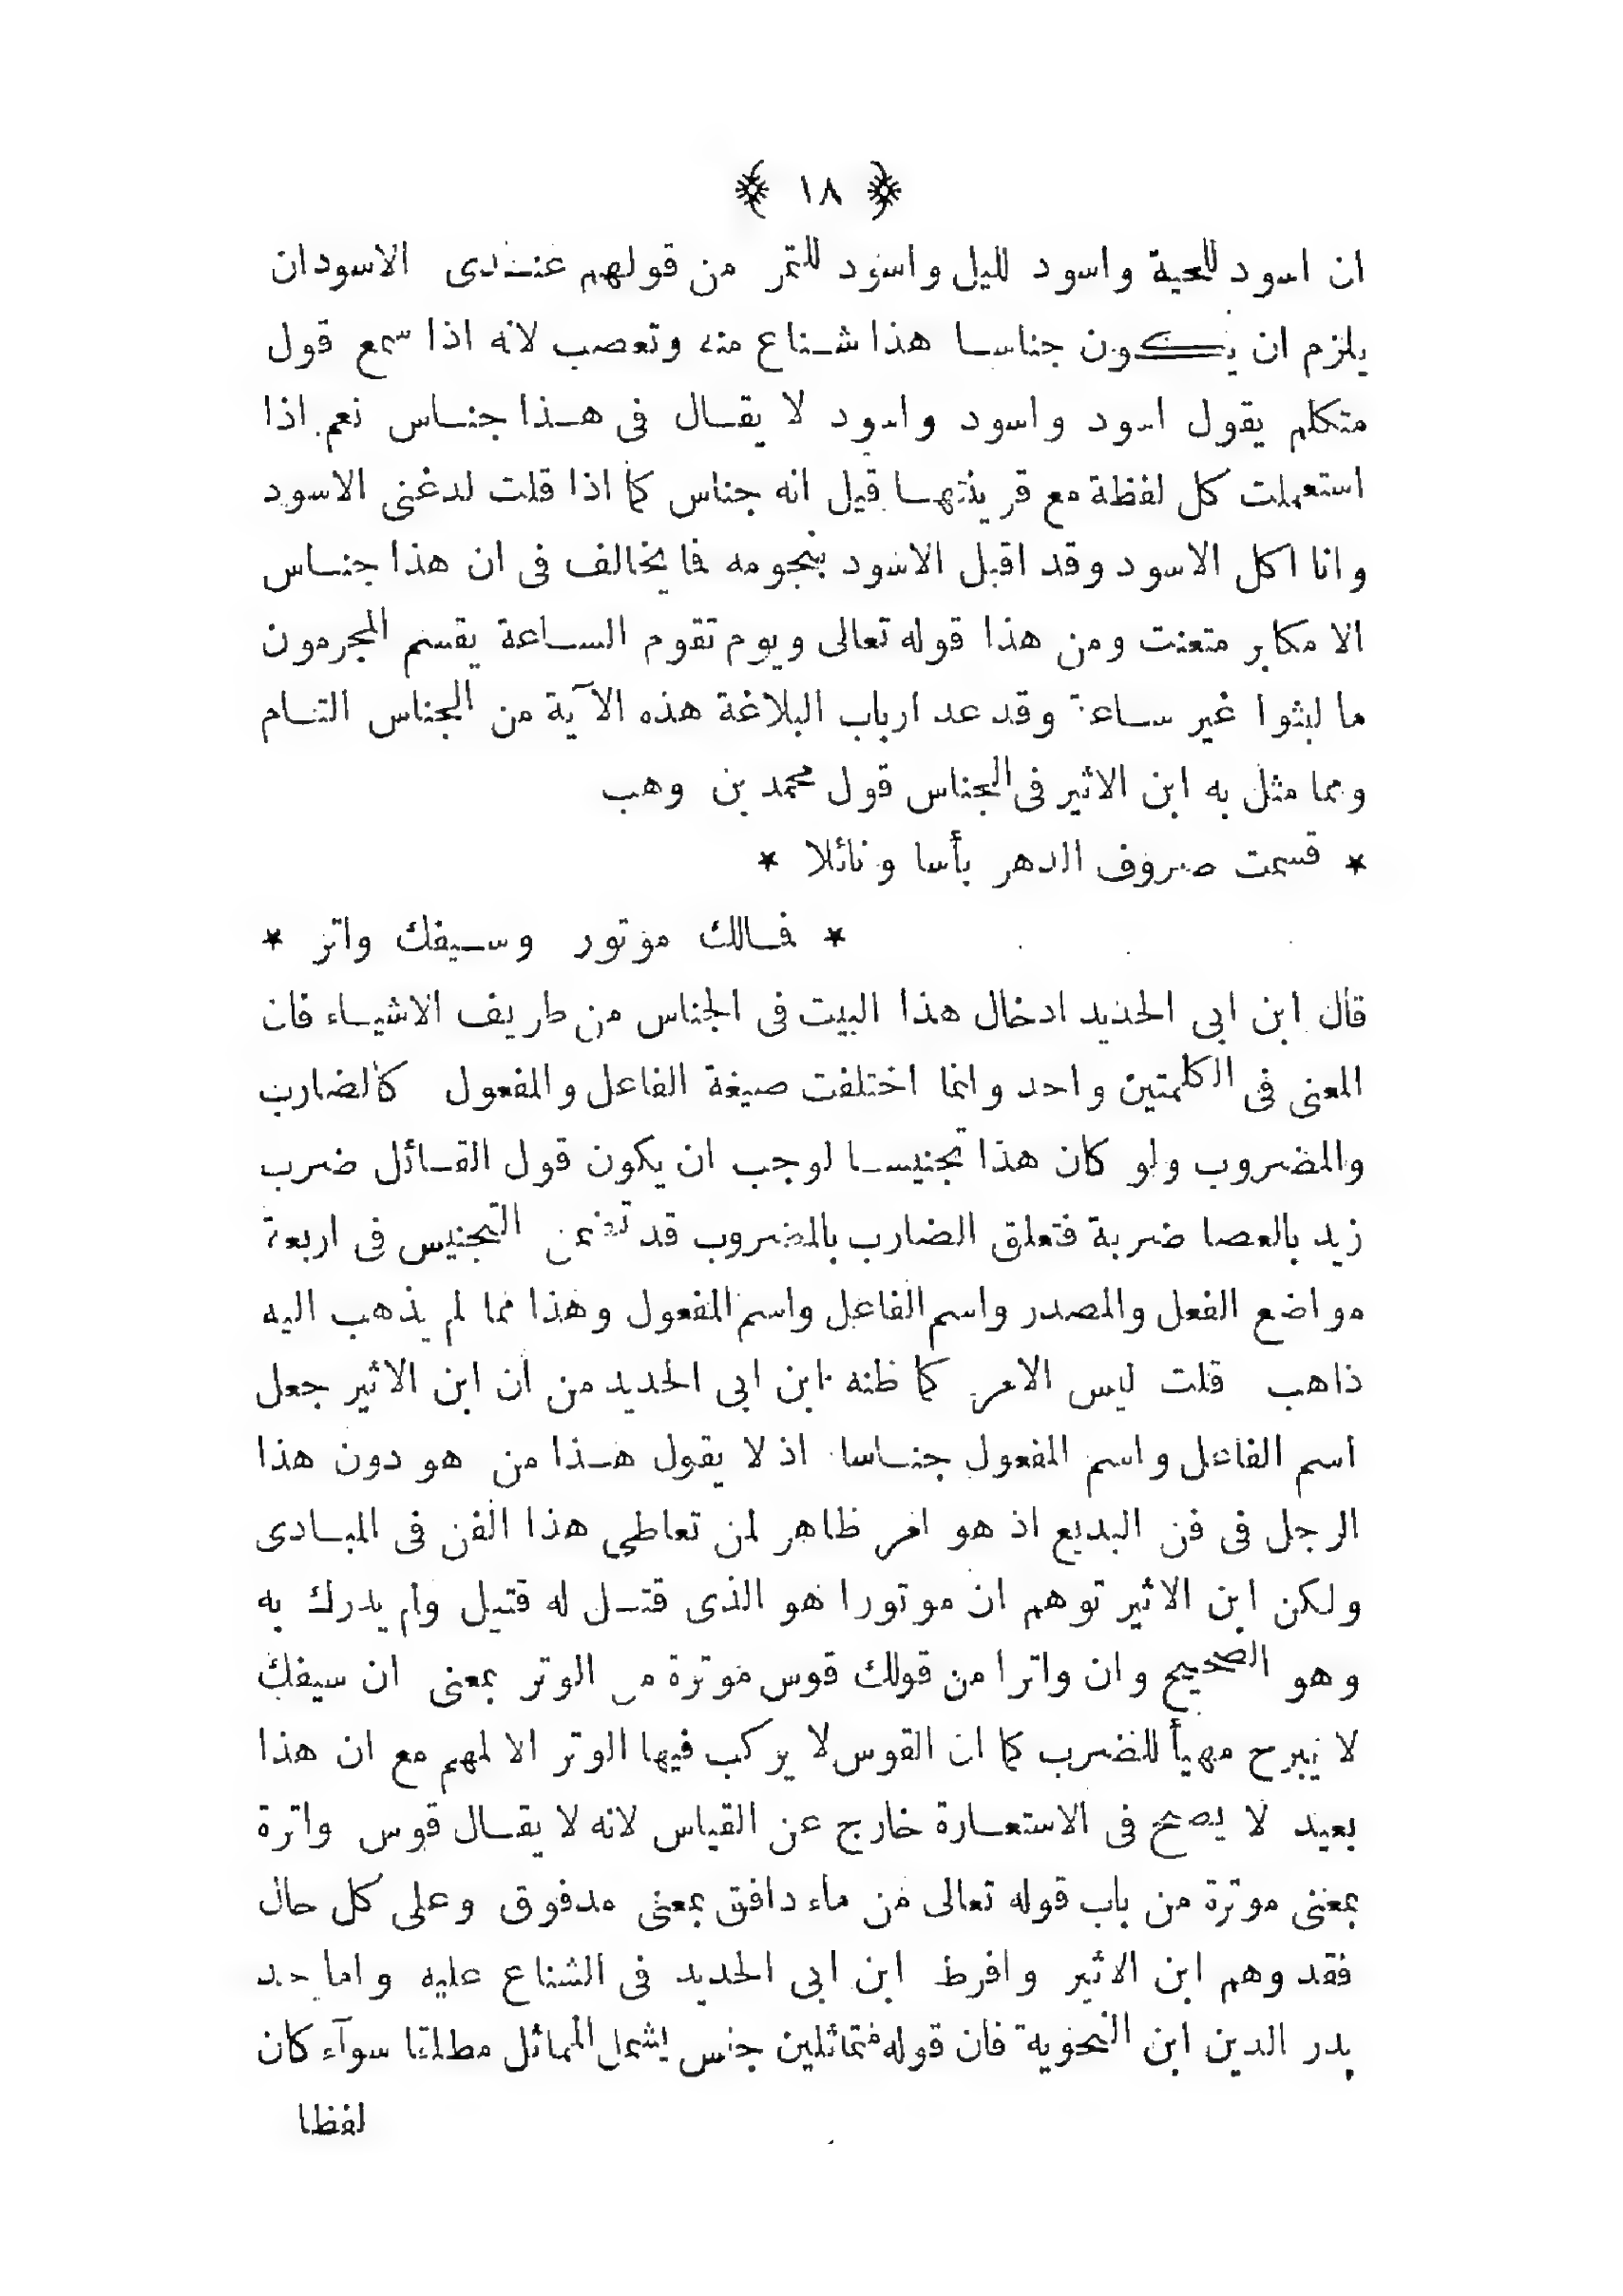 ﴿ ١٨ ﴾
ان اسود للحية واسود لليل واسود للتمر من قولهم عنــدى الاسودان
يلزم ان يكون جناسا هذا شــناع منه وتعصب لانه اذا سمع قول
متكلم يقول اسود واسود واسود لا يقــال فى هــذا جنــاس نعم اذا
استعملت كل لفظة مع قرينتهــا قيل انه جناس كما اذا قلت لدغنى الاسود
وانا اكل الاسود وقد اقبل الاسود بنجومه فما يخالف فى ان هذا جنــاس
الا مكابر متعنت ومن هذا قوله تعالى ويوم تقوم الســاعة يقسم المجرمون
ما لبثوا غير ســاعة وقد عد ارباب البلاغة هذه الآية من الجناس التــام
ومما مثل به ابن الاثير فى الجناس قول محمد بن وهب
* قسمت صروف الدهر بأسا ونائلا *
* فــالك موتور وســيفك واتر *
قال ابن ابى الحديد ادخال هذا البيت فى الجناس من طريف الاشيــاء فان
المعنى فى الكلمتين واحد وانما اختلفت صيغة الفاعل والمفعول كالضارب
والمضروب ولو كان هذا تجنيســا لوجب ان يكون قول القــائل ضرب
زيد بالعصا ضربة فتعلق الضارب بالمضروب قد تضمن التجنيس فى اربعة
مواضع الفعل والمصدر واسم الفاعل واسم المفعول وهذا مما لم يذهب اليه
ذاهب قلت ليس الامر كما ظنه ابن ابى الحديد من ان ابن الاثير جعل
اسم الفاعل واسم المفعول جنــاسا اذ لا يقول هــذا من هو دون هذا
الرجل فى فن البديع اذ هو امر ظاهر لمن تعاطى هذا الفن فى المبــادى
ولكن ابن الاثير توهم ان موتورا هو الذى قتــل له قتيل ولم يدرك به
وهو الصحيح وان واترا من قولك قوس موترة من الوتر بمعنى ان سيفك
لا يبرح مهيأ للضرب كما ان القوس لا يركب فيها الوتر الا لمهم مع ان هذا
بعيد لا يصح فى الاستعــارة خارج عن القياس لانه لا يقــال قوس واترة
بمعنى موترة من باب قوله تعالى من ماء دافق بمعنى مدفوق وعلى كل حال
فقد وهم ابن الاثير وافرط ابن ابى الحديد فى الشناع عليه واما حد
بدر الدين ابن النحوية فان قوله متماثلين جنس يشمل المماثل مطلقا سوآء كان
لفظا